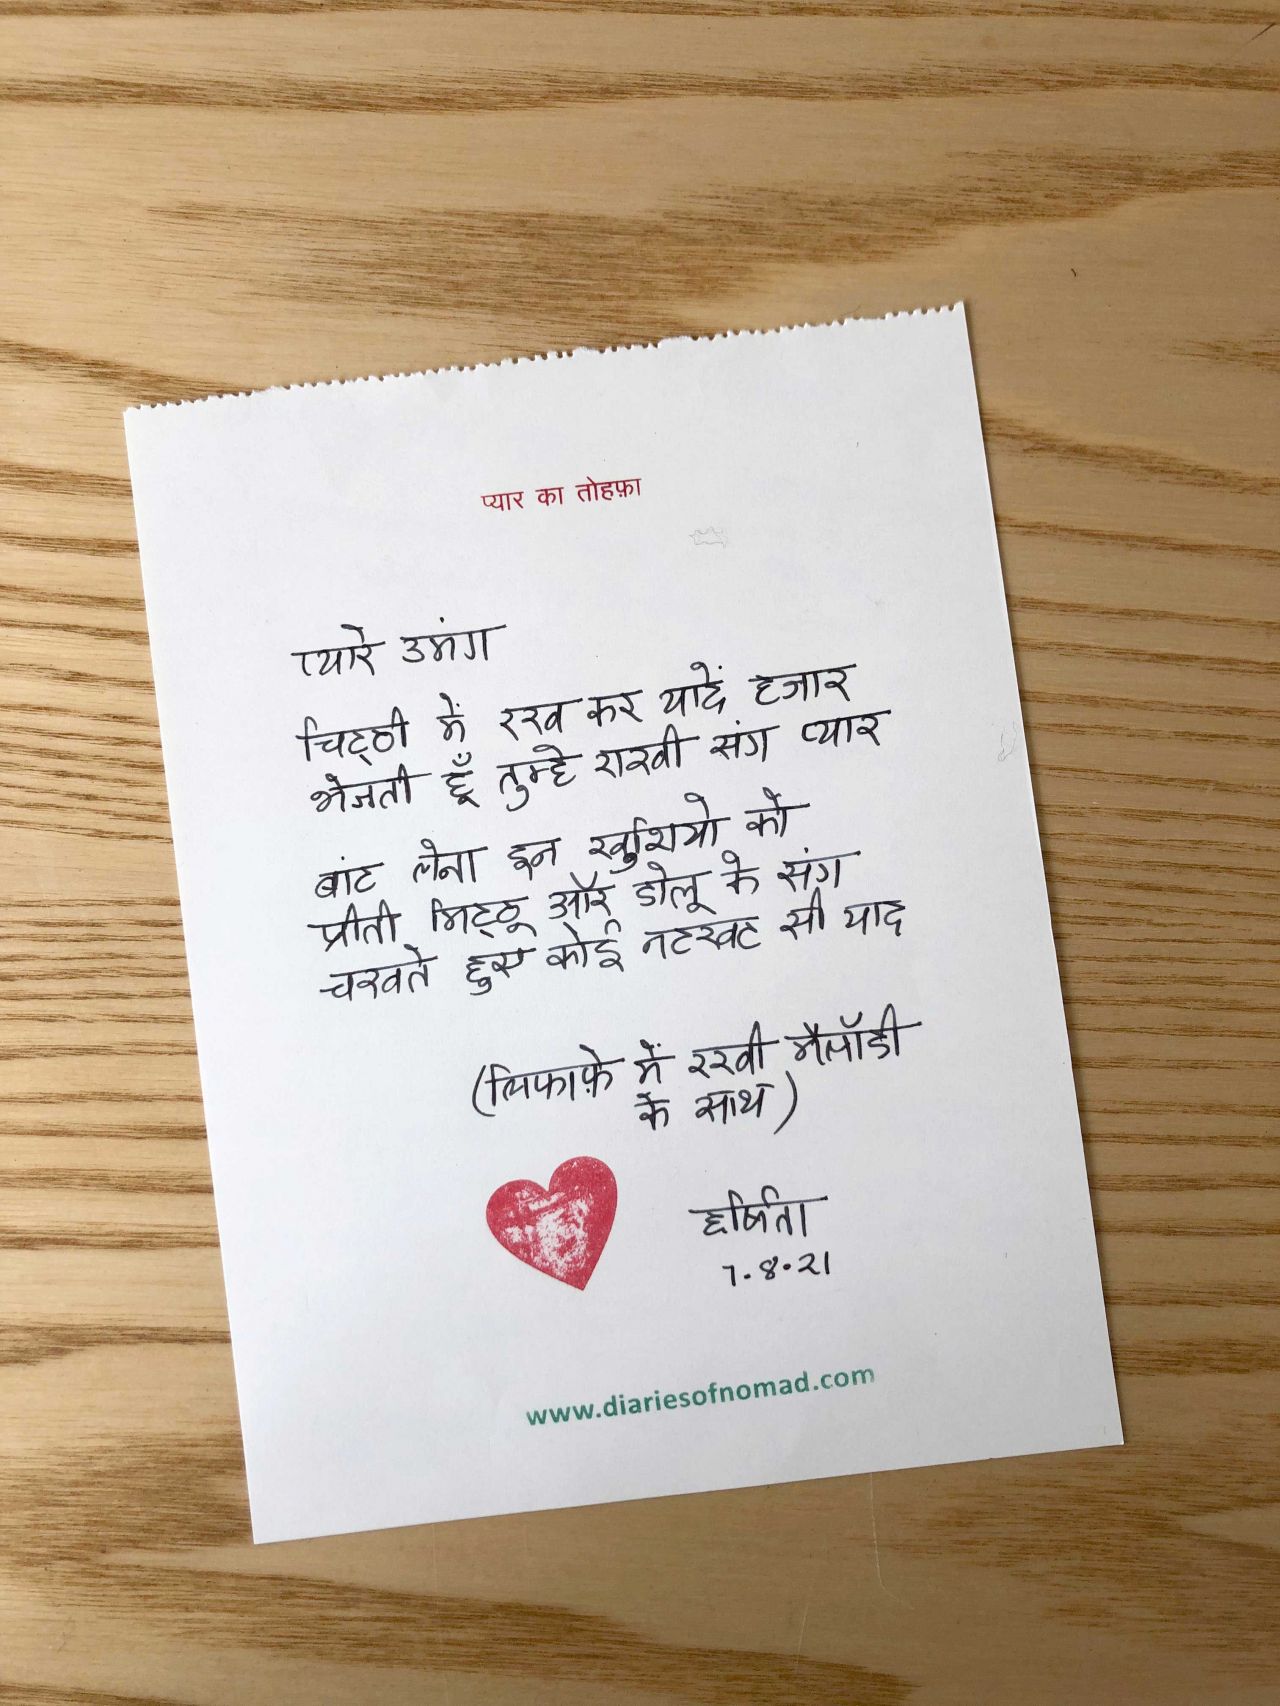 प्यार का तोहफ़ा
प्यारे उमंग
चिट्ठी में रख कर यादें हजार
भेजती हूँ तुम्हे राखी संग प्यार
बांट लेना इन खुशियो को
प्रीती, मिट्ठू और डोलू के संग
चखते हुए कोई नटखट सी याद
(लिफाफ़े में रखी मैलॉडी
के साथ)
हर्षिता
7.8.21
www.diariesofnomad.com